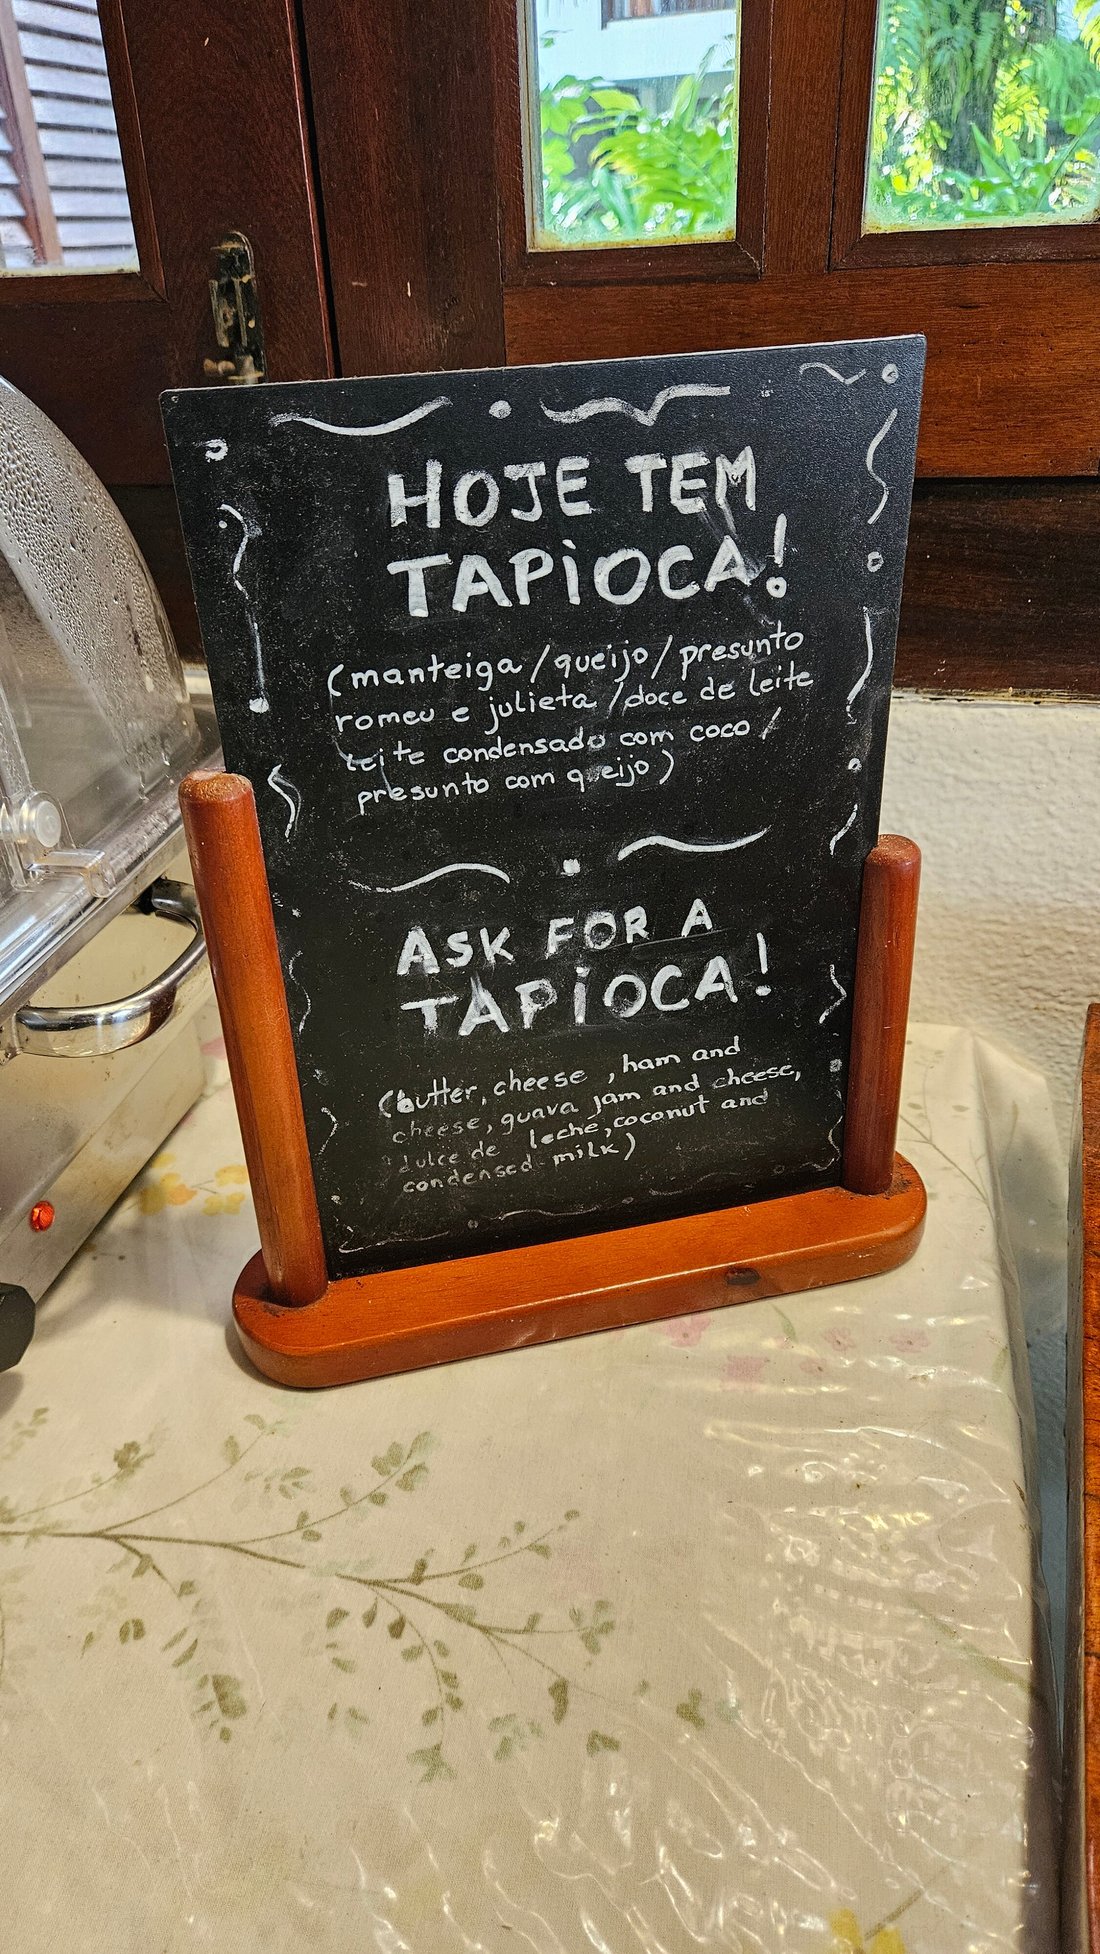 HOJE TEM
TAPIOCA!
(manteiga/queijo/presunto
romeu e julieta/doce de leite
leite condensado com coco/
presunto com queijo)
ASK FOR A
TAPIOCA!
(butter, cheese, ham and
cheese, guava jam and cheese,
dulce de leche, coconut and
condensed milk)